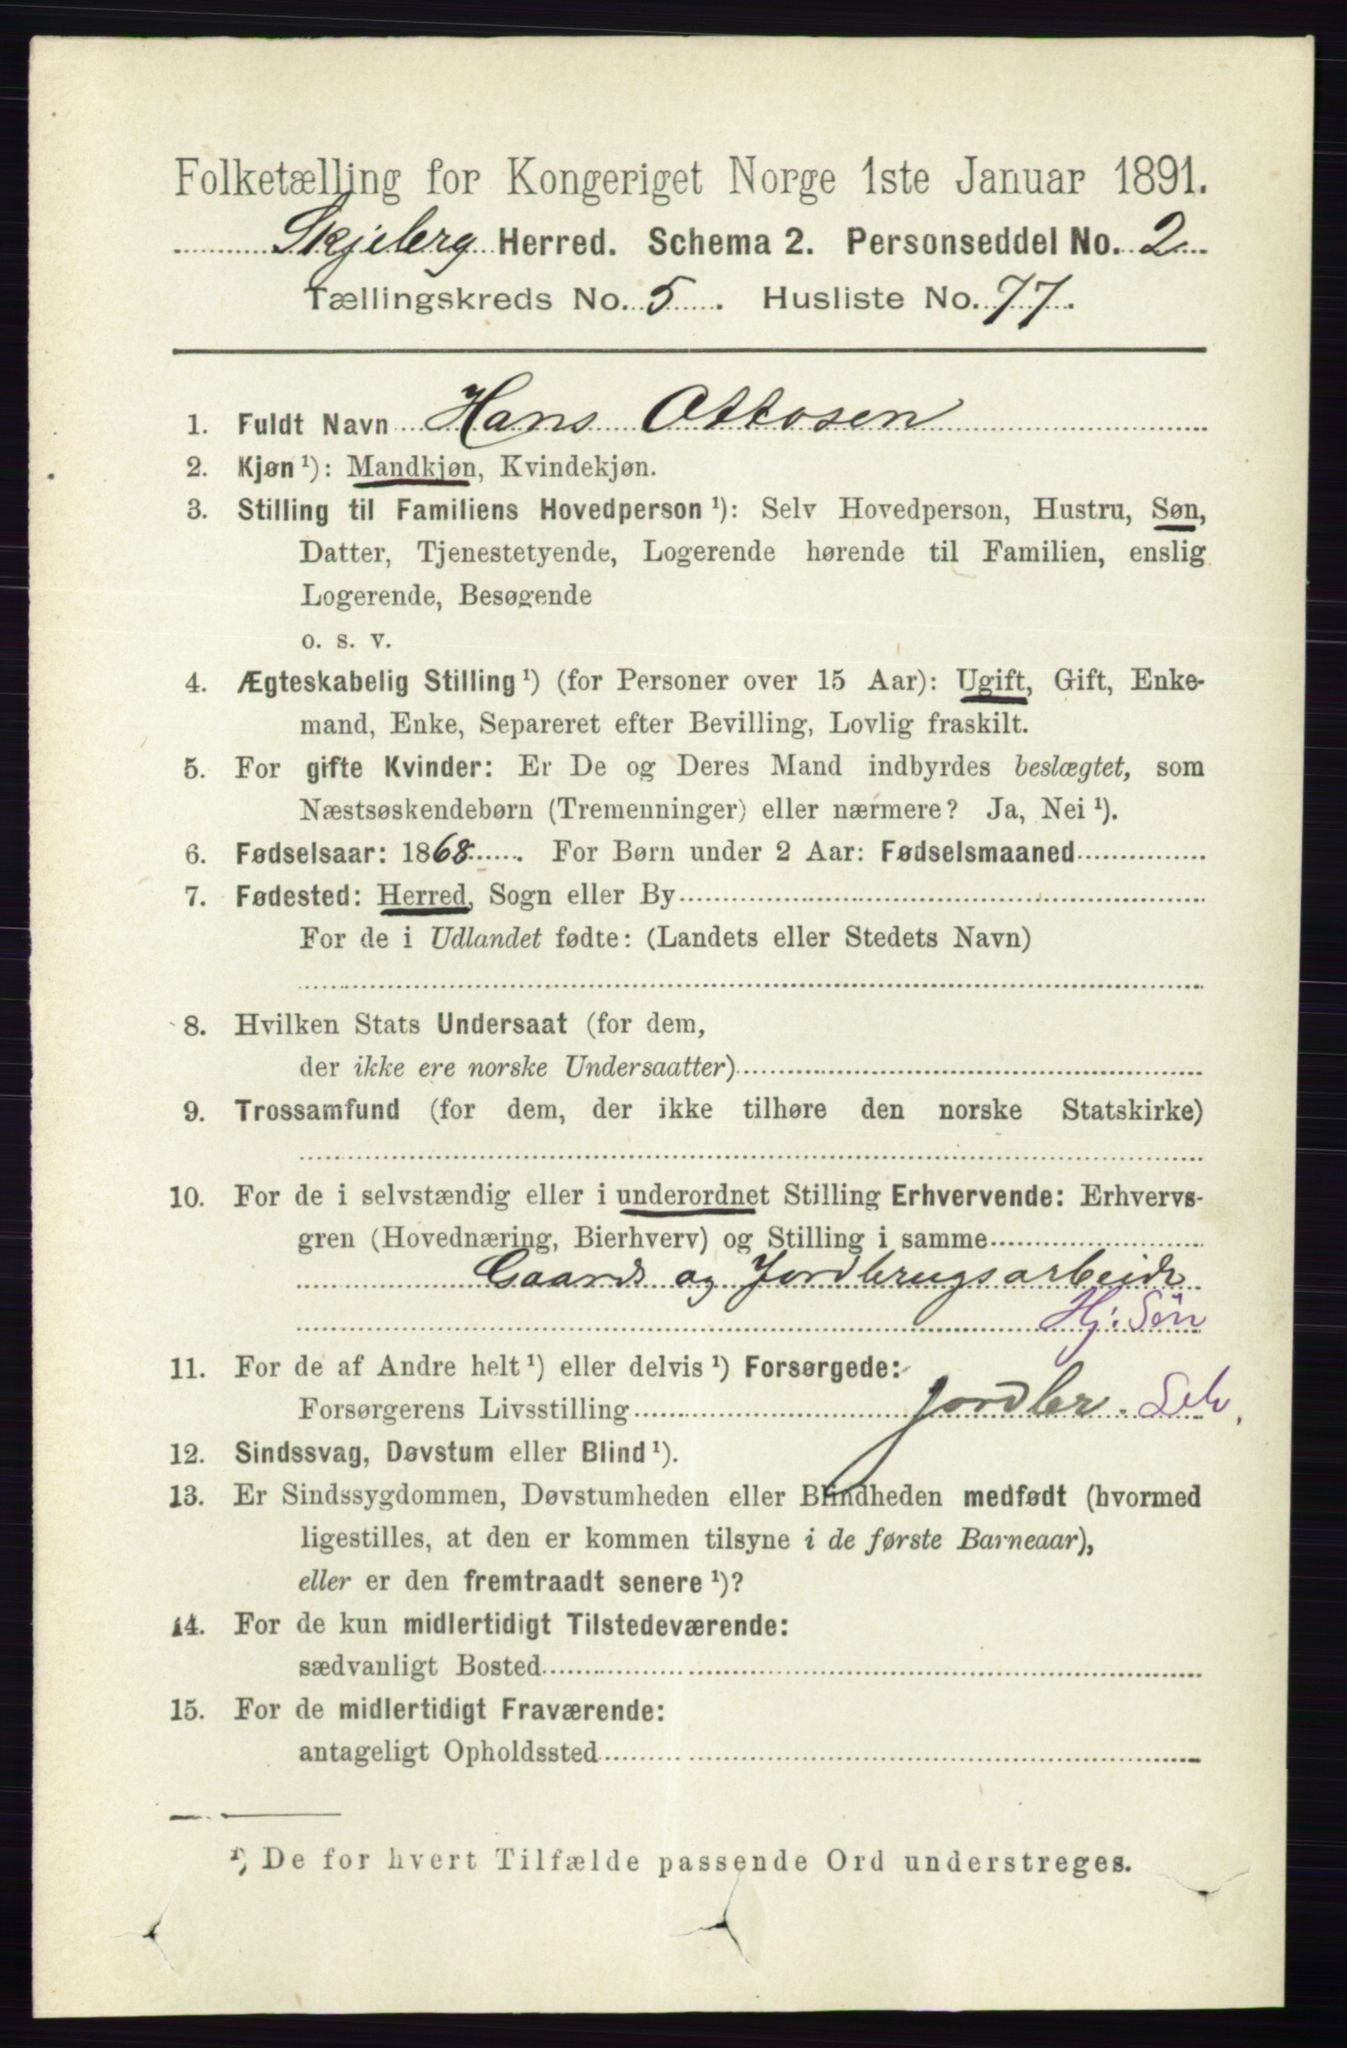 Folketælling for Kongeriget Norge 1ste Januar 1891.
Skjeberg Herred. Schema 2. Personseddel No. 2
Tællingskreds No. 5. Husliste No. 77.
1. Fuldt Navn Hans Ottosen
2. Kjøn¹): Mandkjøn, Kvindekjøn.
3. Stilling til Familiens Hovedperson¹): Selv Hovedperson, Hustru, Søn,
Datter, Tjenestetyende, Logerende hørende til Familien, enslig
Logerende, Besøgende
o. s. v.
4. Ægteskabelig Stilling¹) (for Personer over 15 Aar): Ugift, Gift, Enke-
mand, Enke, Separeret efter Bevilling, Lovlig fraskilt.
5. For gifte Kvinder: Er De og Deres Mand indbyrdes beslægtet, som
Næstsøskendebørn (Tremenninger) eller nærmere? Ja, Nei¹).
6. Fødselsaar: 1868. For Børn under 2 Aar: Fødselsmaaned
7. Fødested: Herred, Sogn eller By
For de i Udlandet fødte: (Landets eller Stedets Navn)
8. Hvilken Stats Undersaat (for dem,
der ikke ere norske Undersaatter)
9. Trossamfund (for dem, der ikke tilhøre den norske Statskirke)
10. For de i selvstændig eller i underordnet Stilling Erhvervende: Erhvervs-
gren (Hovednæring, Bierhverv) og Stilling i samme
Gaards og Jordbrugsarbeide
Hj: Søn
11. For de af Andre helt¹) eller delvis¹) Forsørgede:
Forsørgerens Livsstilling Jordbr. Selv.
12. Sindssvag, Døvstum eller Blind¹).
13. Er Sindssygdommen, Døvstumheden eller Blindheden medfødt (hvormed
ligestilles, at den er kommen tilsyne i de første Barneaar),
eller er den fremtraadt senere¹)?
14. For de kun midlertidigt Tilstedeværende:
sædvanligt Bosted
15. For de midlertidigt Fraværende:
antageligt Opholdssted
¹) De for hvert Tilfælde passende Ord understreges.